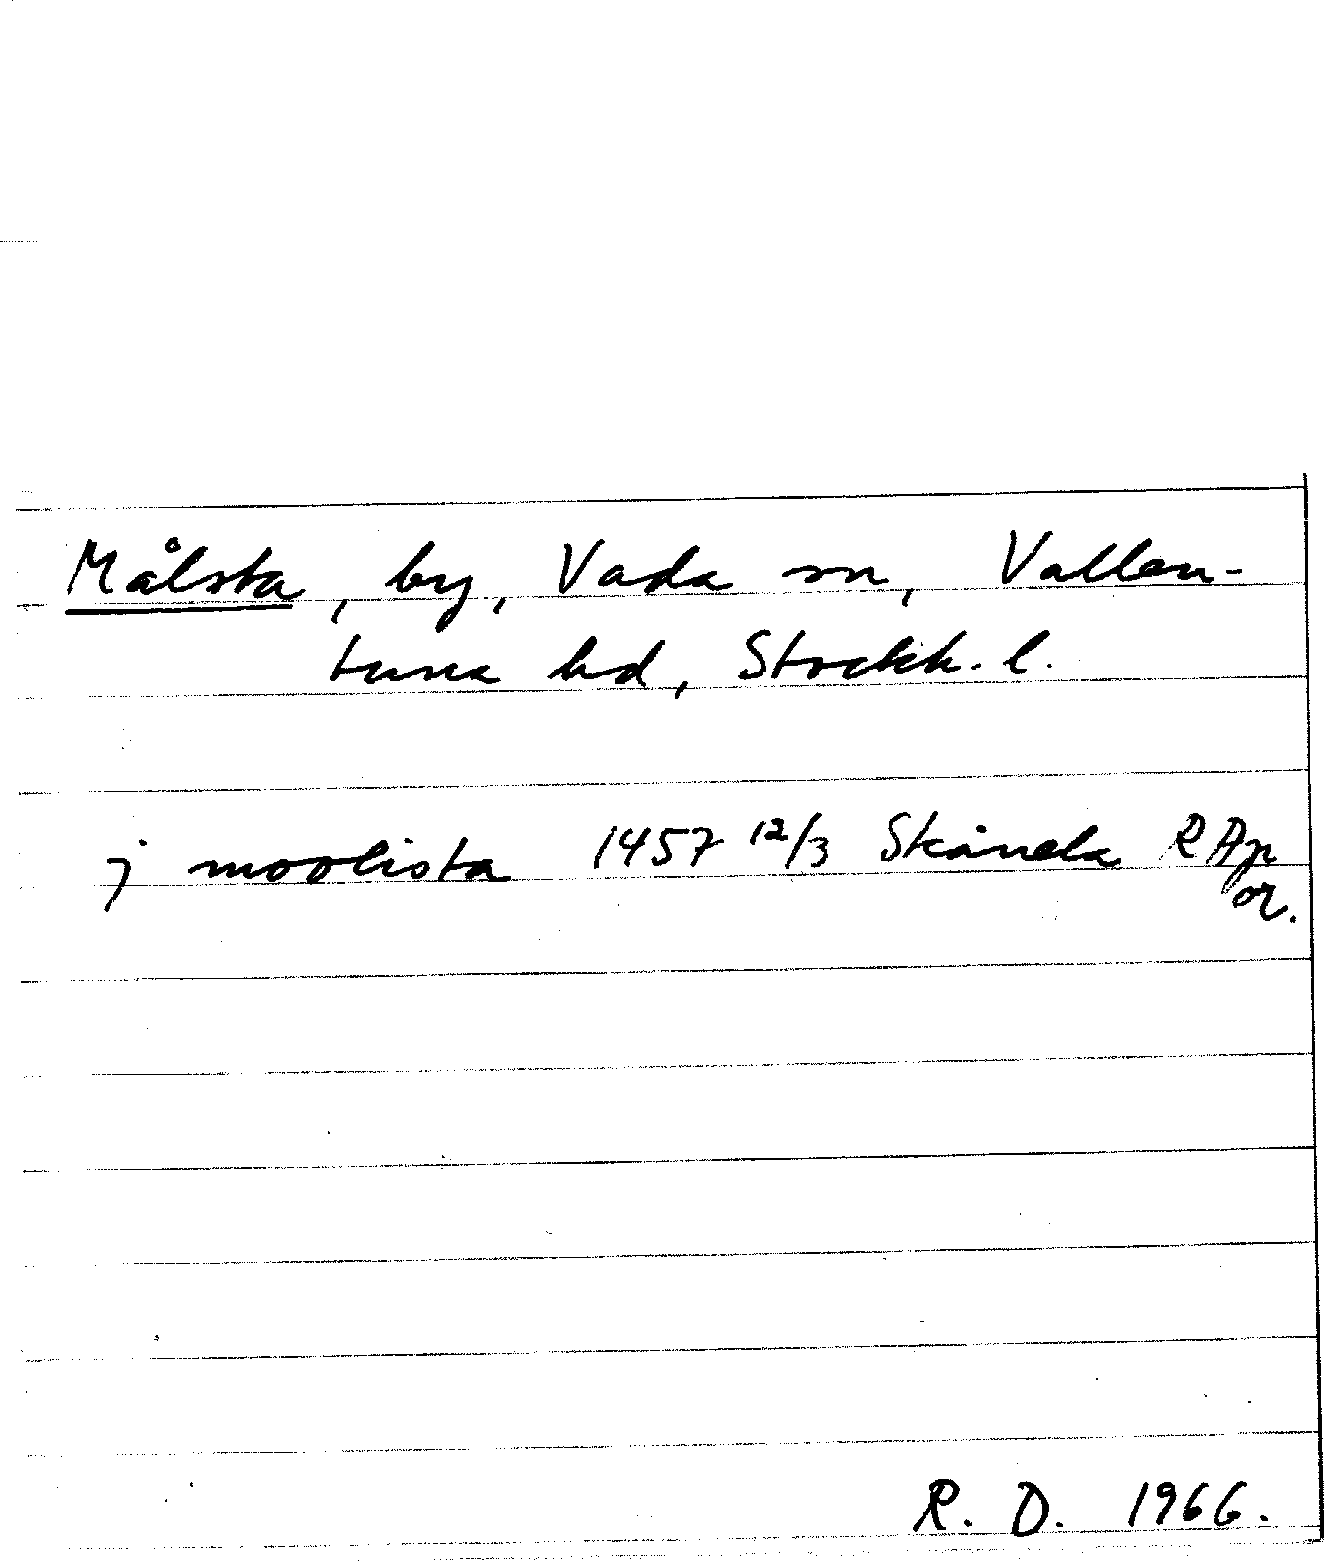 Målsta, by, Vada sn, Vallen-
tuna hd, Stockh. l.
j moolista 1457 12/3 Skånela RAp
or.
R. D. 1966.